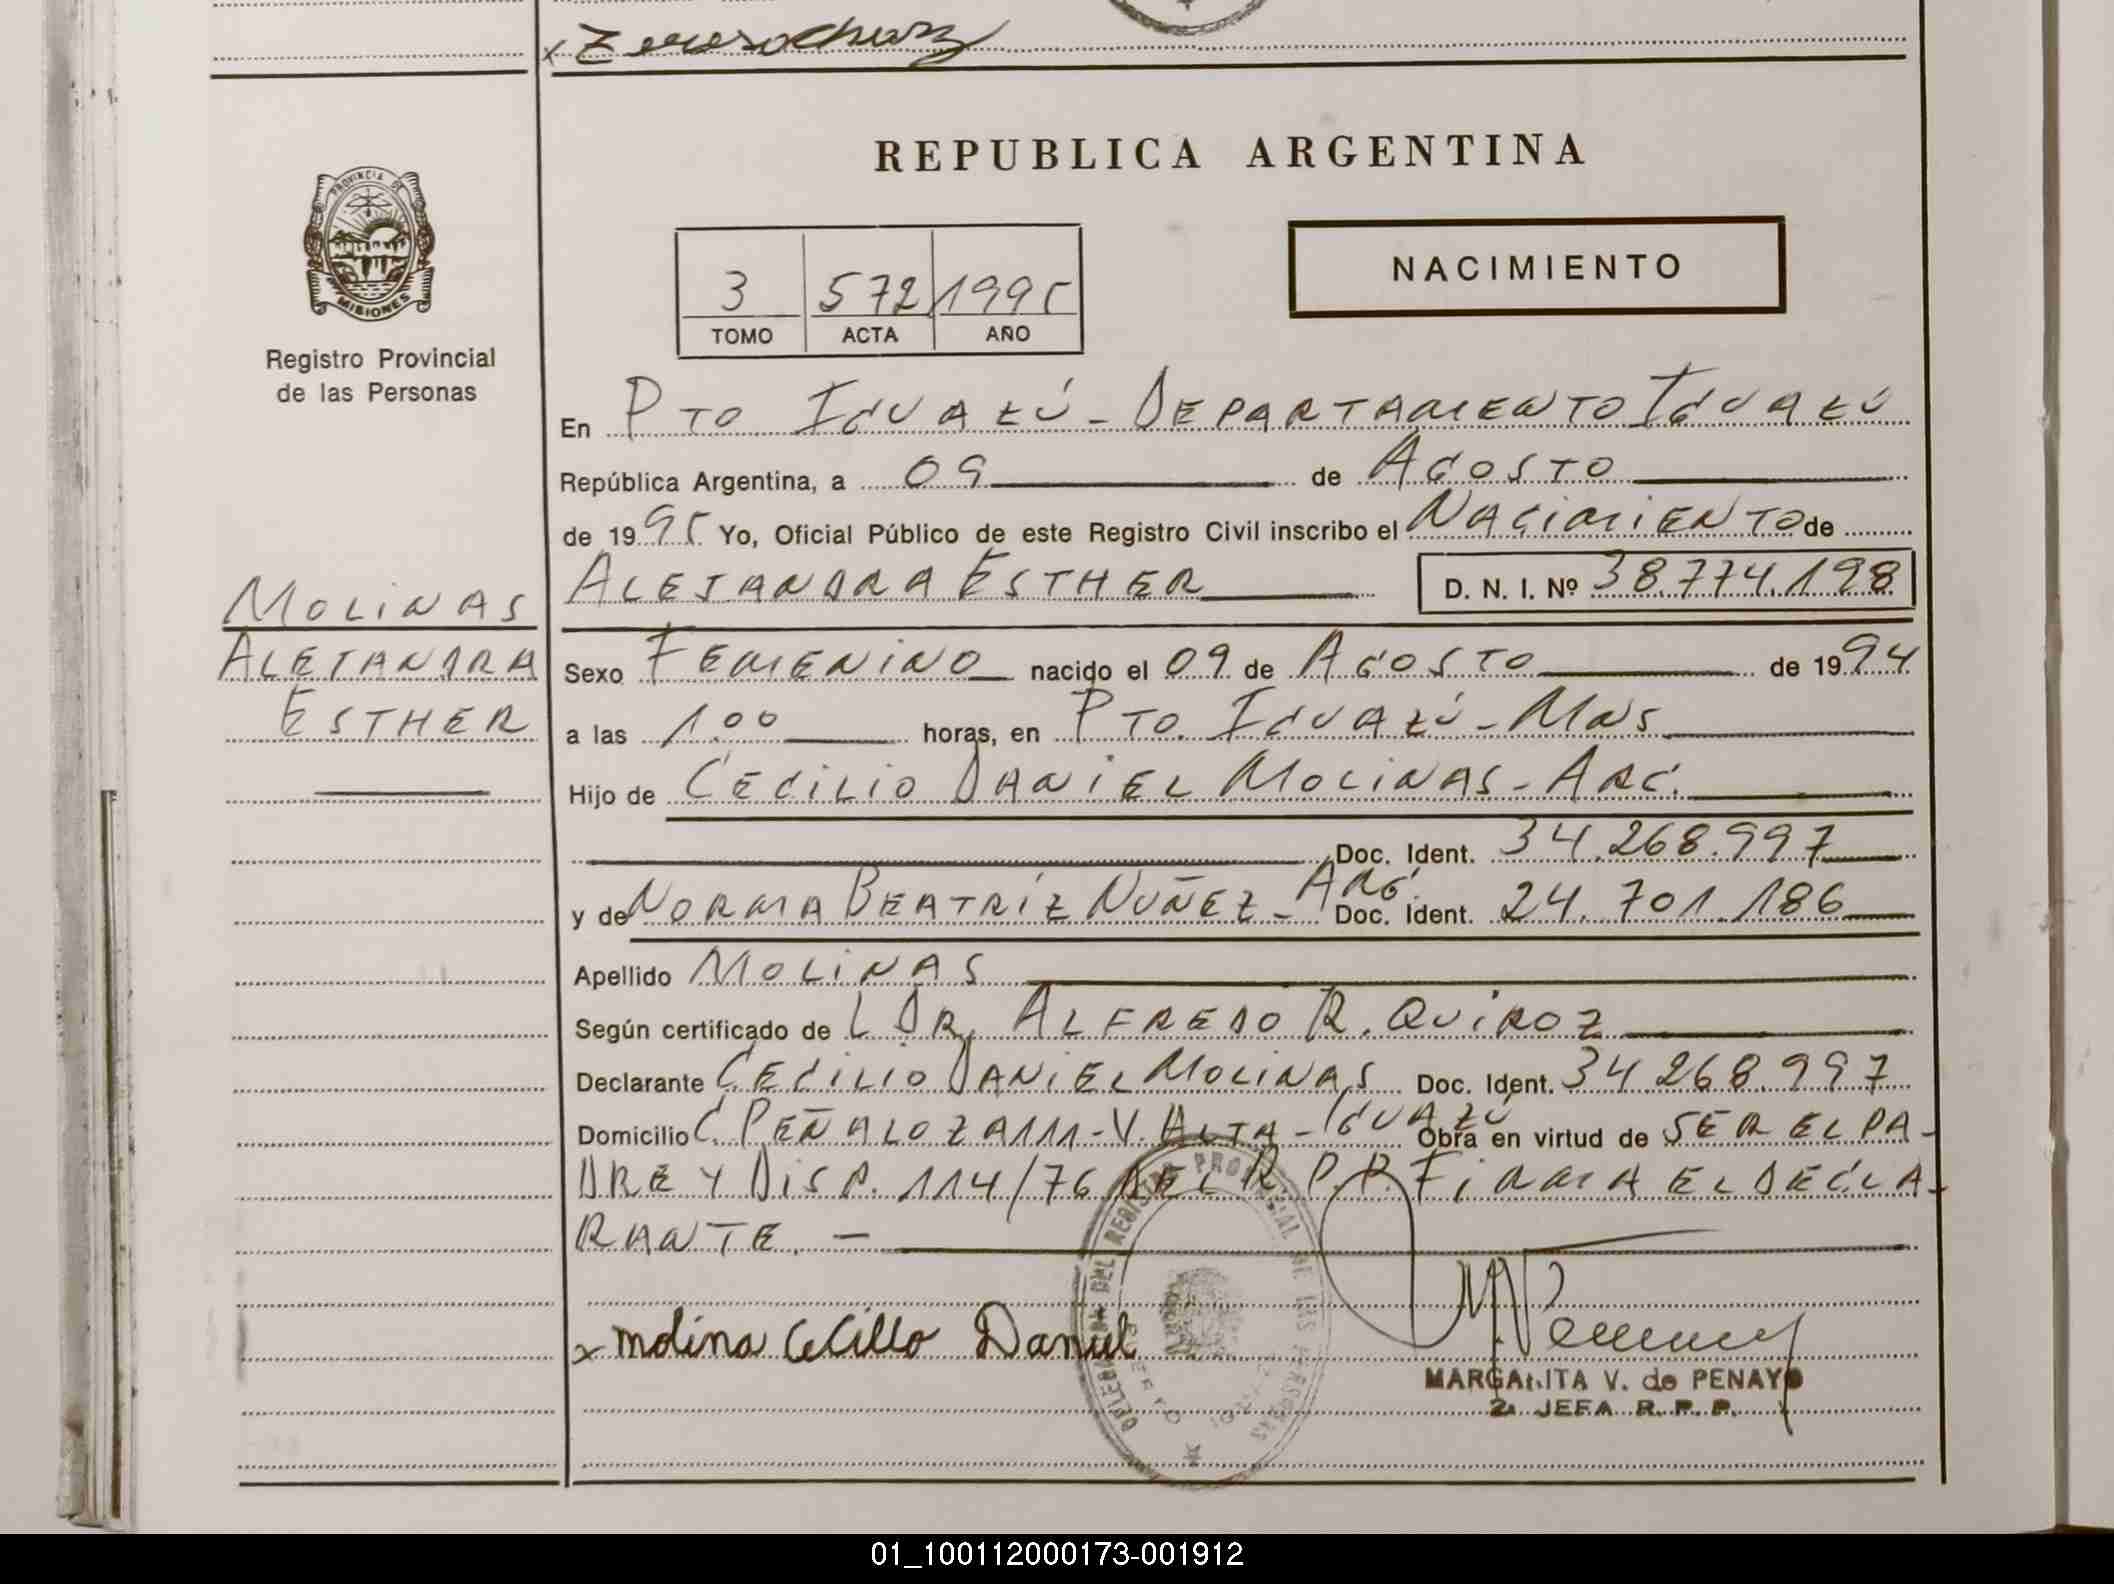 REPUBLICA ARGENTINA
PROVINCIA DE
MISIONES
Registro Provincial
de las Personas
3 572 1995
TOMO ACTA AÑO
NACIMIENTO
En PTO IGUAZÚ - DEPARTAMENTO IGUAZÚ
República Argentina, a 09 de AGOSTO
de 1995 Yo, Oficial Público de este Registro Civil inscribo el NACIMIENTO de
ALEJANDRA ESTHER D. N. I. Nº 38.774.198
MOLINAS
ALEJANDRA
ESTHER
Sexo FEMENINO nacido el 09 de AGOSTO de 1994
a las 1.00 horas, en PTO. IGUAZÚ - MNS
Hijo de CECILIO DANIEL MOLINAS - ARG.
Doc. Ident. 34.268.997
y de NORMA BEATRÍZ NUÑEZ - ARG. Doc. Ident. 24.701.186
Apellido MOLINAS
Según certificado de L DR. ALFREDO R. QUIROZ
Declarante CECILIO DANIEL MOLINAS Doc. Ident. 34.268.997
Domicilio C. PEÑALOZA 111 - V. ALTA - IGUAZÚ Obra en virtud de SER EL PA-
DRE Y DISP. 114/76 DEL R.P.P. FIRMA EL DECLA-
RANTE. -
x molina Cecilio Daniel
MARGARITA V. de PENAYO
2a JEFA R. P. P.
DEL REGISTRO PROVINCIAL DE LAS PERSONAS
01_100112000173-001912